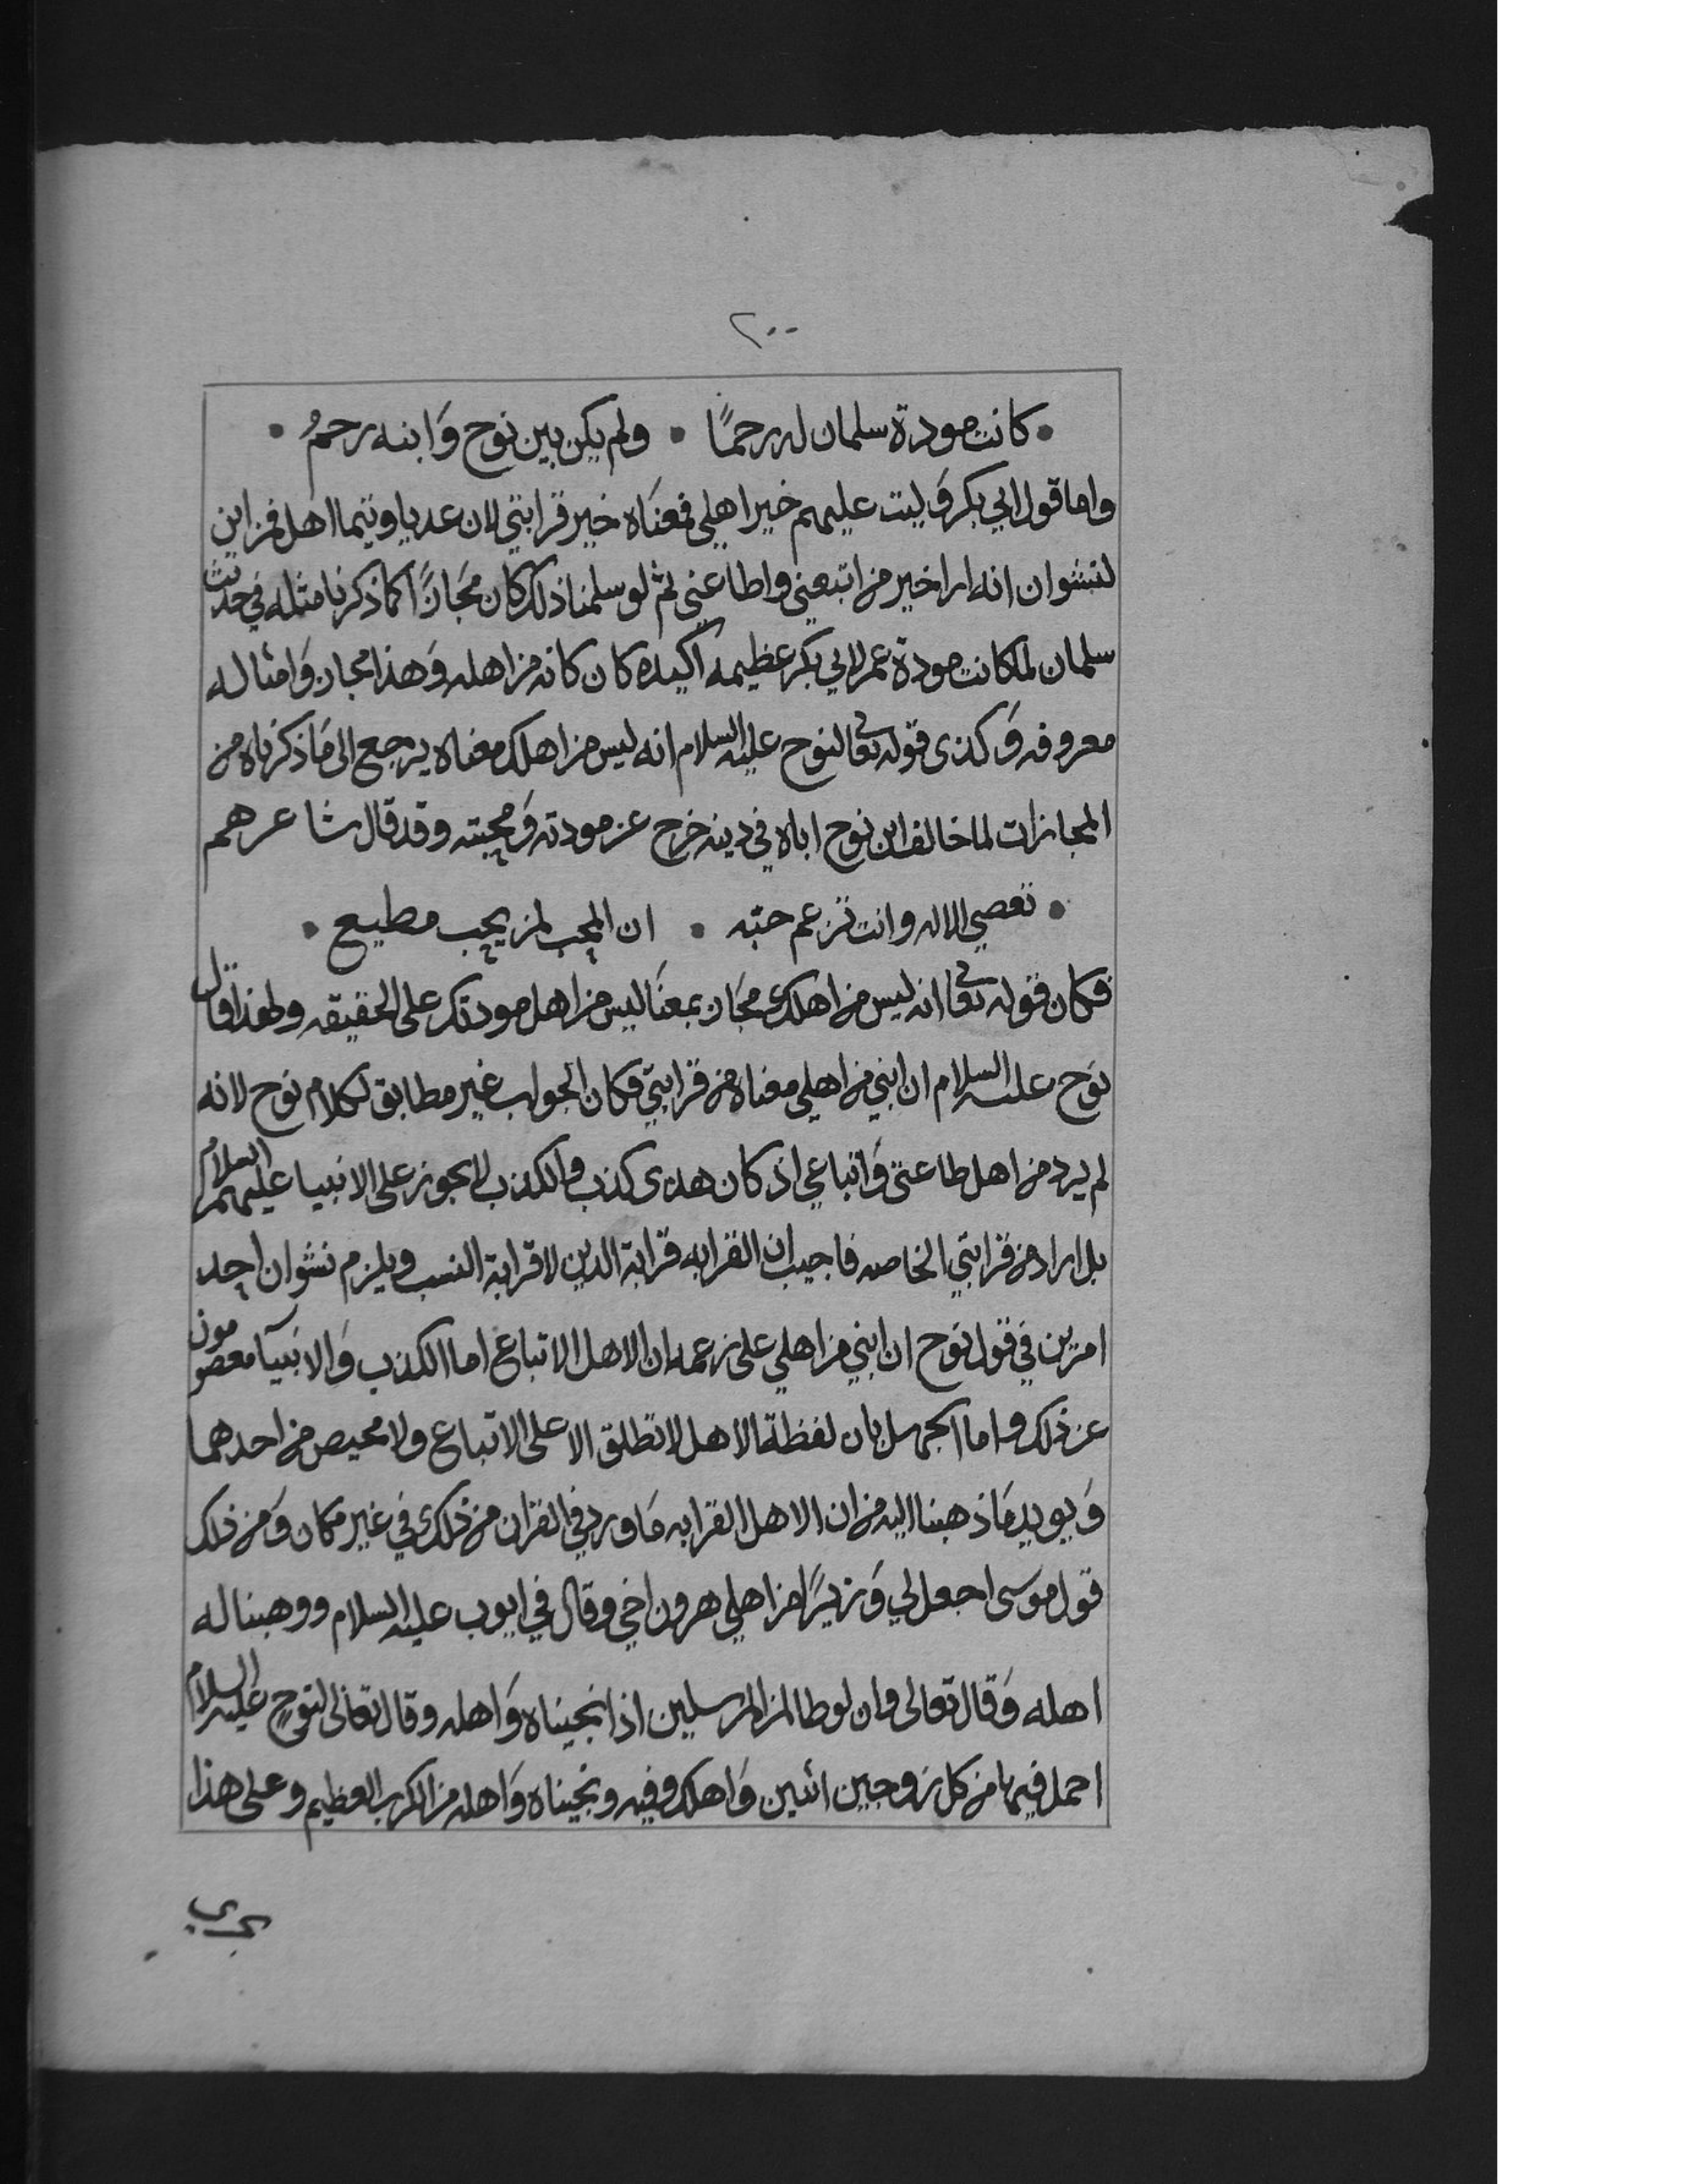 ٢٠٠
• كانت مودة سلمان له رحمًا • ولم يكن بين نوح وَابنه رحمُ •
واما قول ابي بكر وَليت عليهم خير اهلي فمعنَاه خير قرابتي لان عديا وتيما اهل فمن اين
لنشوان انه اراد خير من اتبعني واطاعني ثم لو سلمنا ذلك كان مجَازًا كما ذكرنا مثله في حديث
سلمان لما كانت مودة عمر لابي بكر عظيمه اكيده كان كانه من اهله وَهذا مجاز وَامثاله
معروفه وَكذى قوله تعالى لنوح عليه السلام انه ليس من اهلك معناه يرجع الى مَا ذكرناه من
المجازات لما خالف ابن نوح اباه في دينه خرج عن مودته وَمحبته وقد قال شاعرهم
• تعصي الاله وانت تزعم حبّه • ان المحب لمن يحب مطيع •
فكان قوله تعالى انه ليس من اهلك مجَاز بمعنَا ليس من اهل مودتك على الحقيقه ولهذا قال
نوَح عليه السلام ان ابني من اهلي معناه من قرابتي فكان الجواب غير مطابق لكلام نوح لانه
لم يرد من اهل طاعتي وَاتباعي اذ كان هدى كذب والكذب لا يجوز على الانبيا عليهم السلام
بل اراد من قرابتي الخاصه فاجيب ان القرابه قرابة الدين لا قرابة النسب ويلزم نشوان احد
امرين في قول نوح ان ابني من اهلي على زعمه ان الاهل الاتباع اما الكذب وَالانبيآ معصومون
عن ذلك واما الجهل بان لفظة الاهل لا تطلق الا على الاتباع ولا محيص من احدهما
وَيويد مَا ذهبنا اليه من ان الاهل القرابه مَا ورد في القران من ذلك في غير مكان وَمن ذلك
قول موسى اجعل لي وَزيرًا من اهلي هرون اخي وقال في ايوب عليه السلام ووهبنا له
اهله وَقال تعالى وان لوطا لمن المرسلين اذ انجيناه وَاهله وقال تعالى لنوحٍ عليه السلام
احمل فيها من كل زوجين اثنين وَاهلك وفيه ونجيناه وَاهله من الكرب العظيم وعلى هذا
يجري